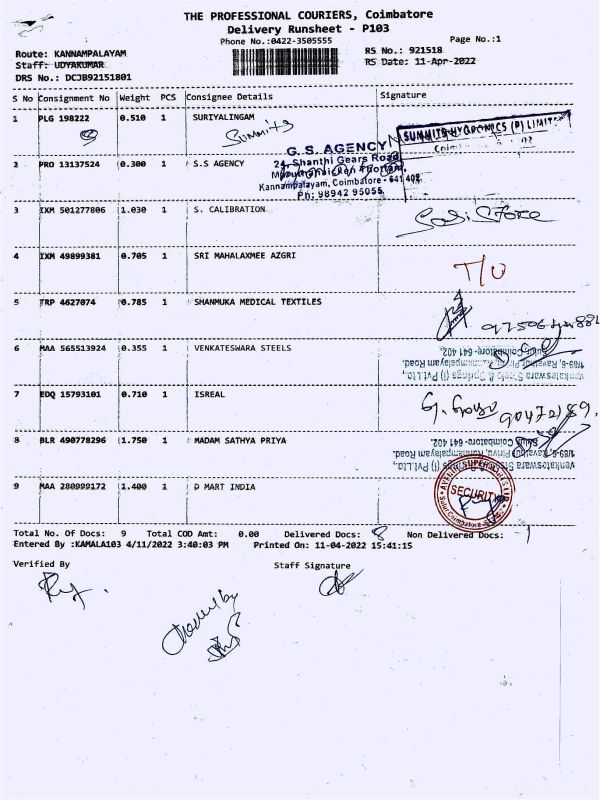 THE PROFESSIONAL COURIERS, Coimbatore
Delivery Runsheet - P103
Phone No.:0422-3505555
Page No.:1
Route: KANNAMPALAYAM
RS No.: 921518
Staff: UDYAKUMAR
RS Date: 11-Apr-2022
DRS No.: DCJB92151801
S No Consignment No Weight PCS Consignee Details Signature
1 PLG 198222 0.510 1 SURIYALINGAM
Summits
SUMMITS HYGRONICS (P) LIMITED
G.S. AGENCY
2 PRO 13137524 0.300 1 S.S AGENCY
24, Shanthi Gears Road
Kannampalayam, Coimbatore - 641 402
Ph: 98942 95055
3 IXM 501277806 1.030 1 S. CALIBRATION
Store
4 IXM 49899381 0.705 1 SRI MAHALAXMEE AZGRI
T/U
5 TRP 4627074 0.785 1 SHANMUKA MEDICAL TEXTILES
6 MAA 565513924 0.355 1 VENKATESWARA STEELS
Sulur, Coimbatore - 641 402.
1/89-6, Ravathur Pirivu, Kannampalayam Road,
Venkateswara Steels & Springs (I) Pvt.Ltd.,
7 EDQ 15793101 0.710 1 ISREAL
8 BLR 490778296 1.750 1 MADAM SATHYA PRIYA
Sulur, Coimbatore - 641 402.
1/89-6, Ravathur Pirivu, Kannampalayam Road,
Venkateswara Steels & Springs (I) Pvt.Ltd.,
9 MAA 280999172 1.400 1 D MART INDIA
SECURITY
Total No. Of Docs: 9 Total COD Amt: 0.00 Delivered Docs: 8 Non Delivered Docs: 1
Entered By :KAMALA103 4/11/2022 3:40:03 PM Printed On: 11-04-2022 15:41:15
Verified By Staff Signature